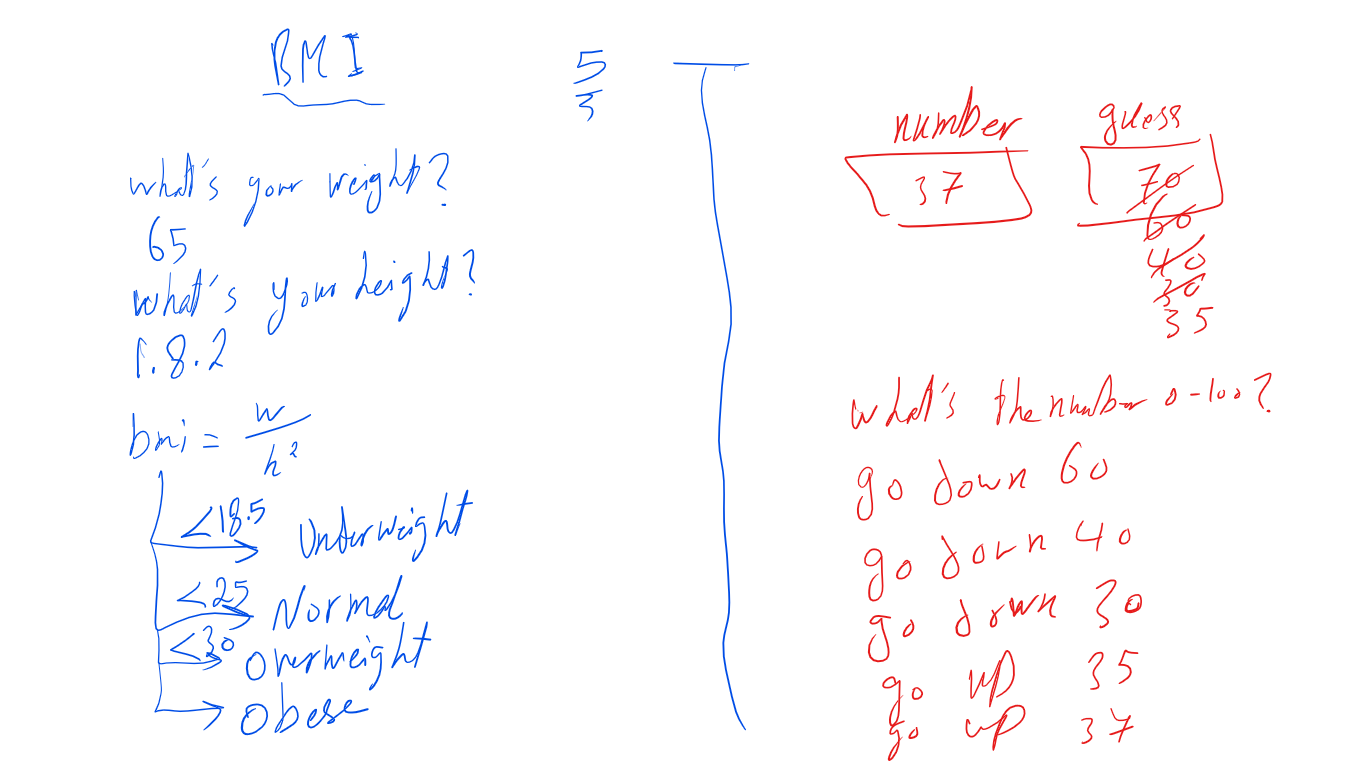 BMI
5
3
what's your weight?
65
what's your height?
1.8.2
bmi = w
h²
<18.5 Underweight
<25 Normal
<30 Overweight
Obese
number guess
37 70
60
40
30
35
what's the number 0-100?
go down 60
go down 40
go down 30
go up 35
go up 37